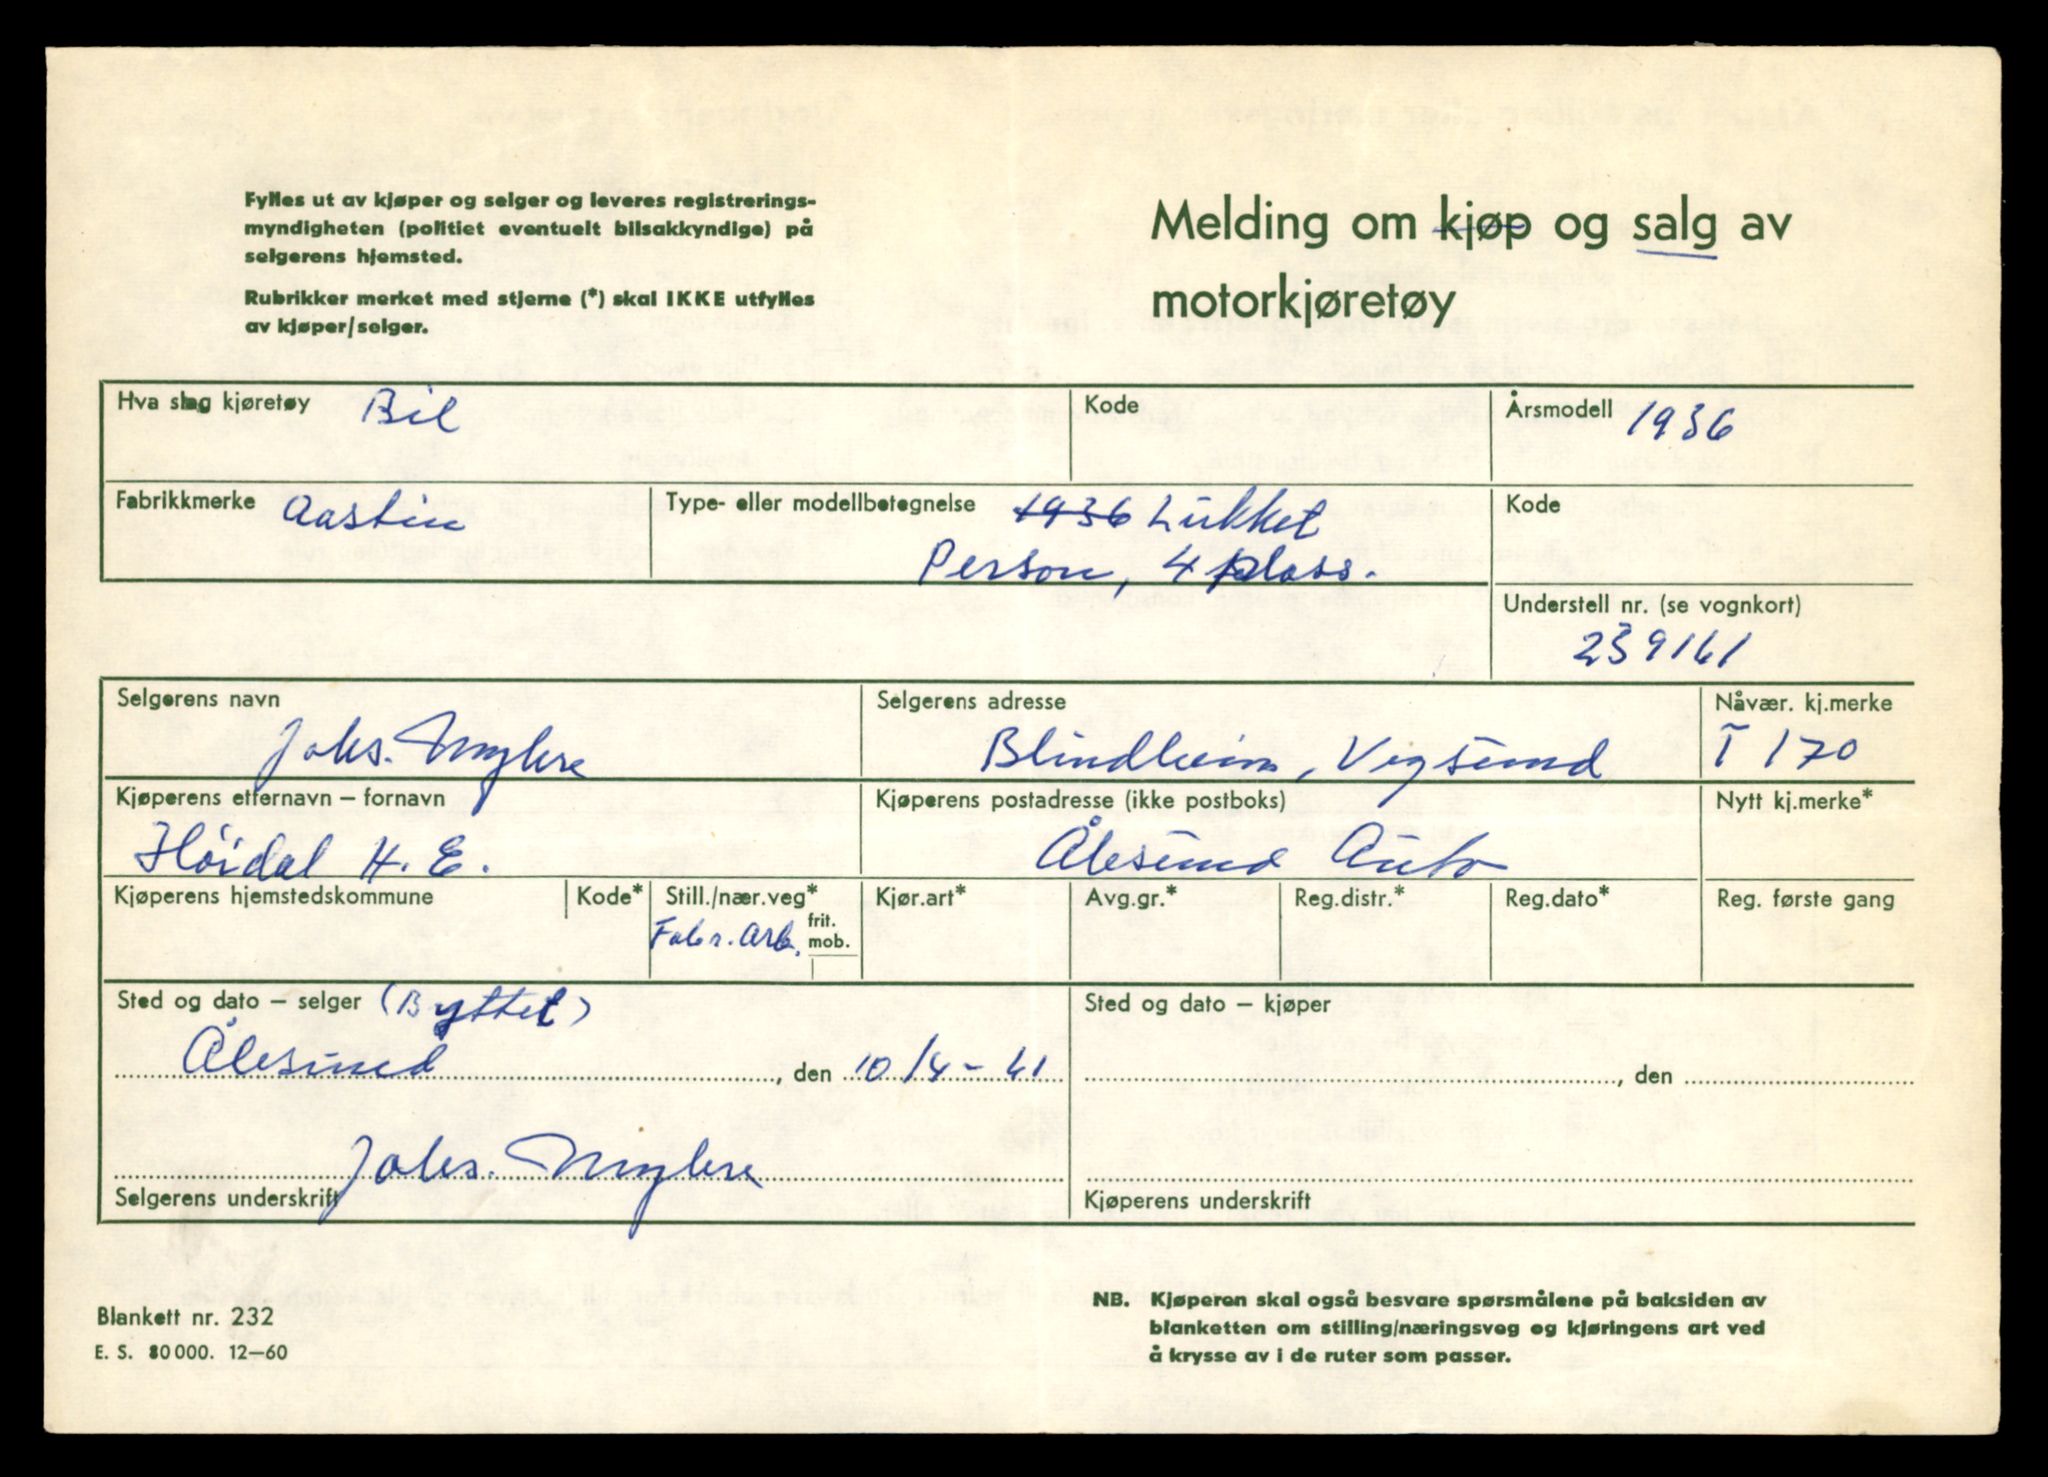 Fylles ut av kjøper og selger og leveres registrerings-
myndigheten (politiet eventuelt bilsakkyndige) på
selgerens hjemsted.
Rubrikker merket med stjerne (*) skal IKKE utfylles
av kjøper/selger.
Melding om kjøp og salg av
motorkjøretøy
Hva slag kjøretøy Bil
Kode
Årsmodell 1936
Fabrikkmerke Austin
Type- eller modellbetegnelse 1936 Lukket
Person, 4 plass.
Kode
Understell nr. (se vognkort)
239161
Selgerens navn
Johs. Myhre
Selgerens adresse
Blindheim, Vegsund
Nåvær. kj.merke
T 170
Kjøperens etternavn – fornavn
Høidal H. E.
Kjøperens postadresse (ikke postboks)
Ålesund Auto
Nytt kj.merke*
Kjøperens hjemstedskommune
Kode*
Still./nær.veg*
Fabr. Arb.
frit.
mob.
Kjør.art*
Avg.gr.*
Reg.distr.*
Reg.dato*
Reg. første gang
Sted og dato – selger (Byttet)
Ålesund, den 10/4 - 61
Sted og dato – kjøper
, den
Johs. Myhre
Selgerens underskrift
Kjøperens underskrift
Blankett nr. 232
E. S. 80 000. 12—60
NB. Kjøperen skal også besvare spørsmålene på baksiden av
blanketten om stilling/næringsveg og kjøringens art ved
å krysse av i de ruter som passer.